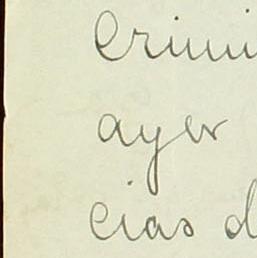 Crimi
ayer
cias d